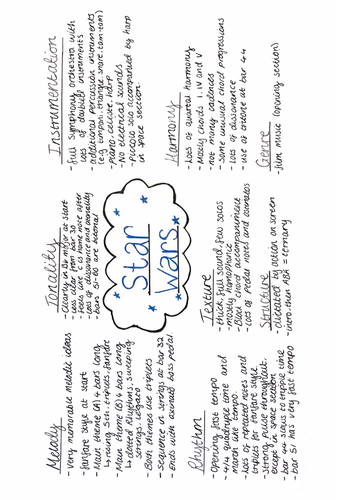 Melody
- Very memorable melodic ideas
- Fanfare style at start
- Main theme (A) 4 bars long
↳ rising 5th, triplets, fanfare
- Main theme (B) 4 bars long
↳ dotted rhythms, swooning
strings, legato
- Both themes use triplets
- Sequence in strings at bar 32
- ends with ostinato bass pedal
Tonality
- Clearly in Bb major at start
- Less clear from bar 30
- Feels like C is home note after
- Lots of dissonance and atonality
- bars 51-60 are bitonal
Instrumentation
- Full symphony orchestra with
lots of doubled instruments
- additional percussion instruments
(e.g. timpani, triangle, snare, tam-tam)
- piano, celeste, harp
- No electrical sounds
- Piccolo solo accompanied by harp
in space section
Star
Wars
Rhythm
- Opening fast tempo
- 4/4 quadruple time and
march like tempo
- Lots of repeated notes and
triplets for fanfare style
- Strong pulse throughout
except in space section
- bar 44 slows to triple time
- bar 51 has very fast tempo
Texture
- thick, full sound, few solos
- mostly homophonic
- Block chord accompaniment
- Lots of pedal notes and ostinatos
Structure
- dictated by action on screen
- intro, then ABA - ternary
Harmony
- Lots of quartal harmony
- Mostly chords I, IV and V
- not many cadences
- some unusual chord progressions
- Lots of dissonance
- use of tritone at bar 44
Genre
- film music (opening section)